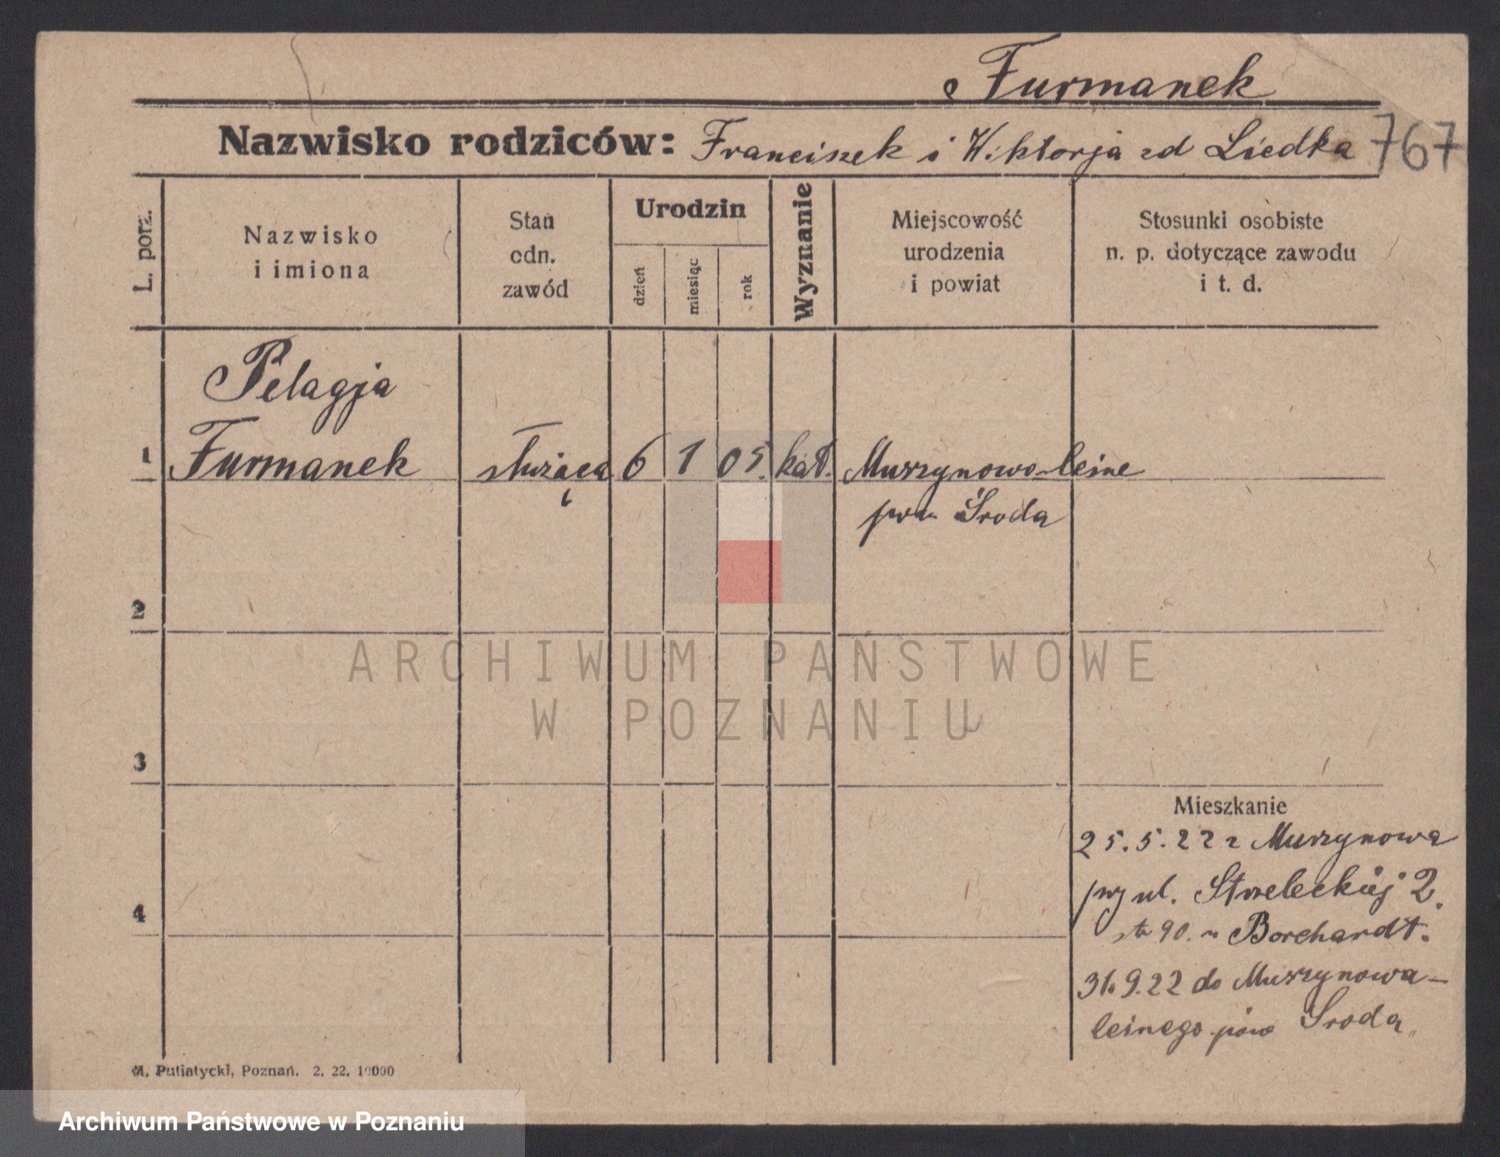 Furmanek
Nazwisko rodziców: Franciszek i Wiktorja zd Liedka 767
L. porz.
Nazwisko
i imiona
Stan
odn.
zawód
Urodzin
dzień
miesiąc
rok
Wyznanie
Miejscowość
urodzenia
i powiat
Stosunki osobiste
n. p. dotyczące zawodu
i t. d.
Pelagja
1 Furmanek służąca 6 1 05. kat. Murzynowo-leine
pow. Środa
2
ARCHIWUM PAŃSTWOWE
W POZNANIU
3
Mieszkanie
25.5.22 z Murzynowa
przy ul. Strzeleckiej 2.
4
90. Borchardt.
31.9.22 do Murzynowa-
leinego pow Środa.
M. Putiatycki, Poznań. 2. 22. 10000
Archiwum Państwowe w Poznaniu